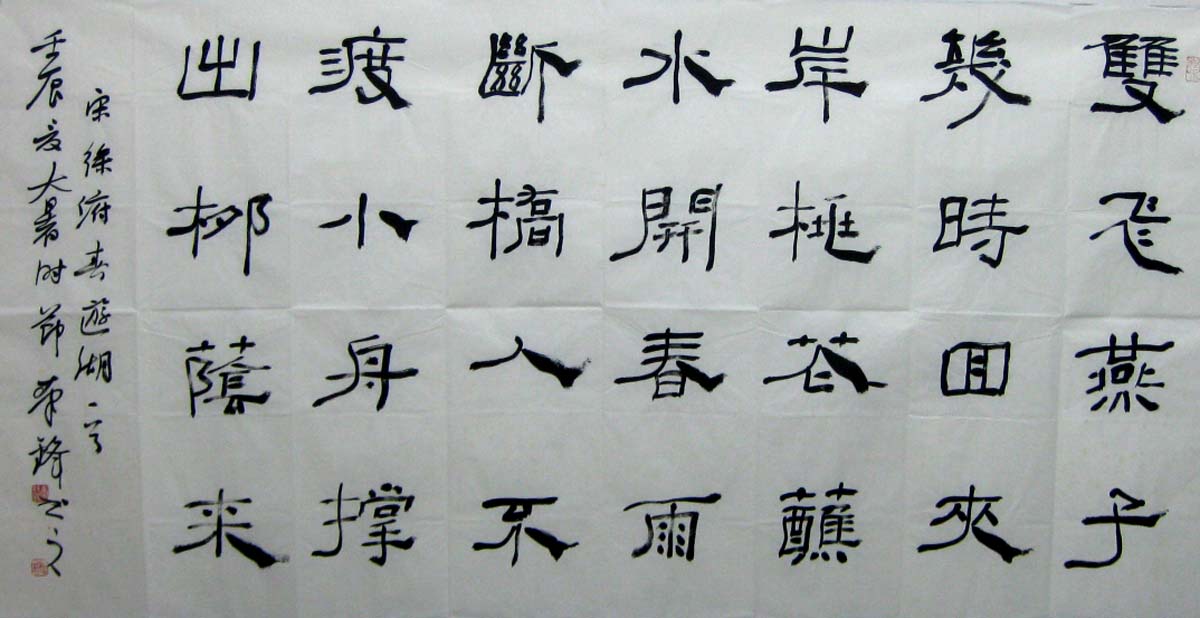 雙飛燕子
幾時囬夾
岸桃花蘸
水開春雨
斷橋人不
渡小舟撑
出柳蔭来
宋徐府春遊湖一首
壬辰夏大暑时節鋒书